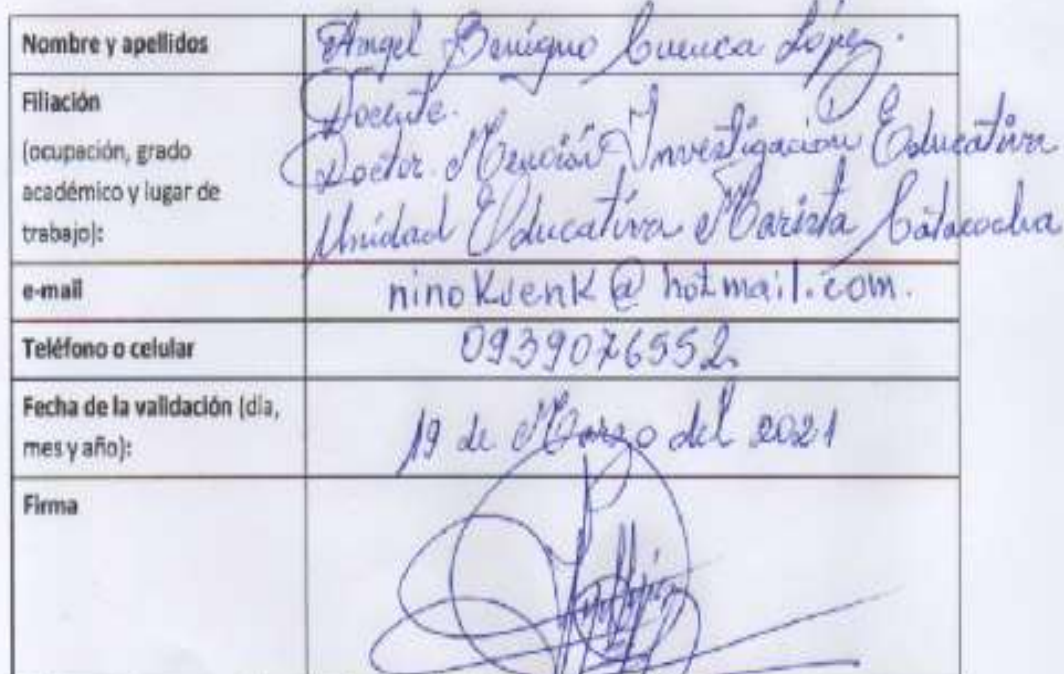 Nombre y apellidos
Angel Benigno Cuenca López.
Filiación
(ocupación, grado
académico y lugar de
trabajo):
Docente.
Doctor Mención Investigación Educativa
Unidad Educativa Marista Catacocha
e-mail
ninoKvenK@hotmail.com.
Teléfono o celular
0939076552
Fecha de la validación (dia,
mes y año):
19 de Marzo del 2021
Firma